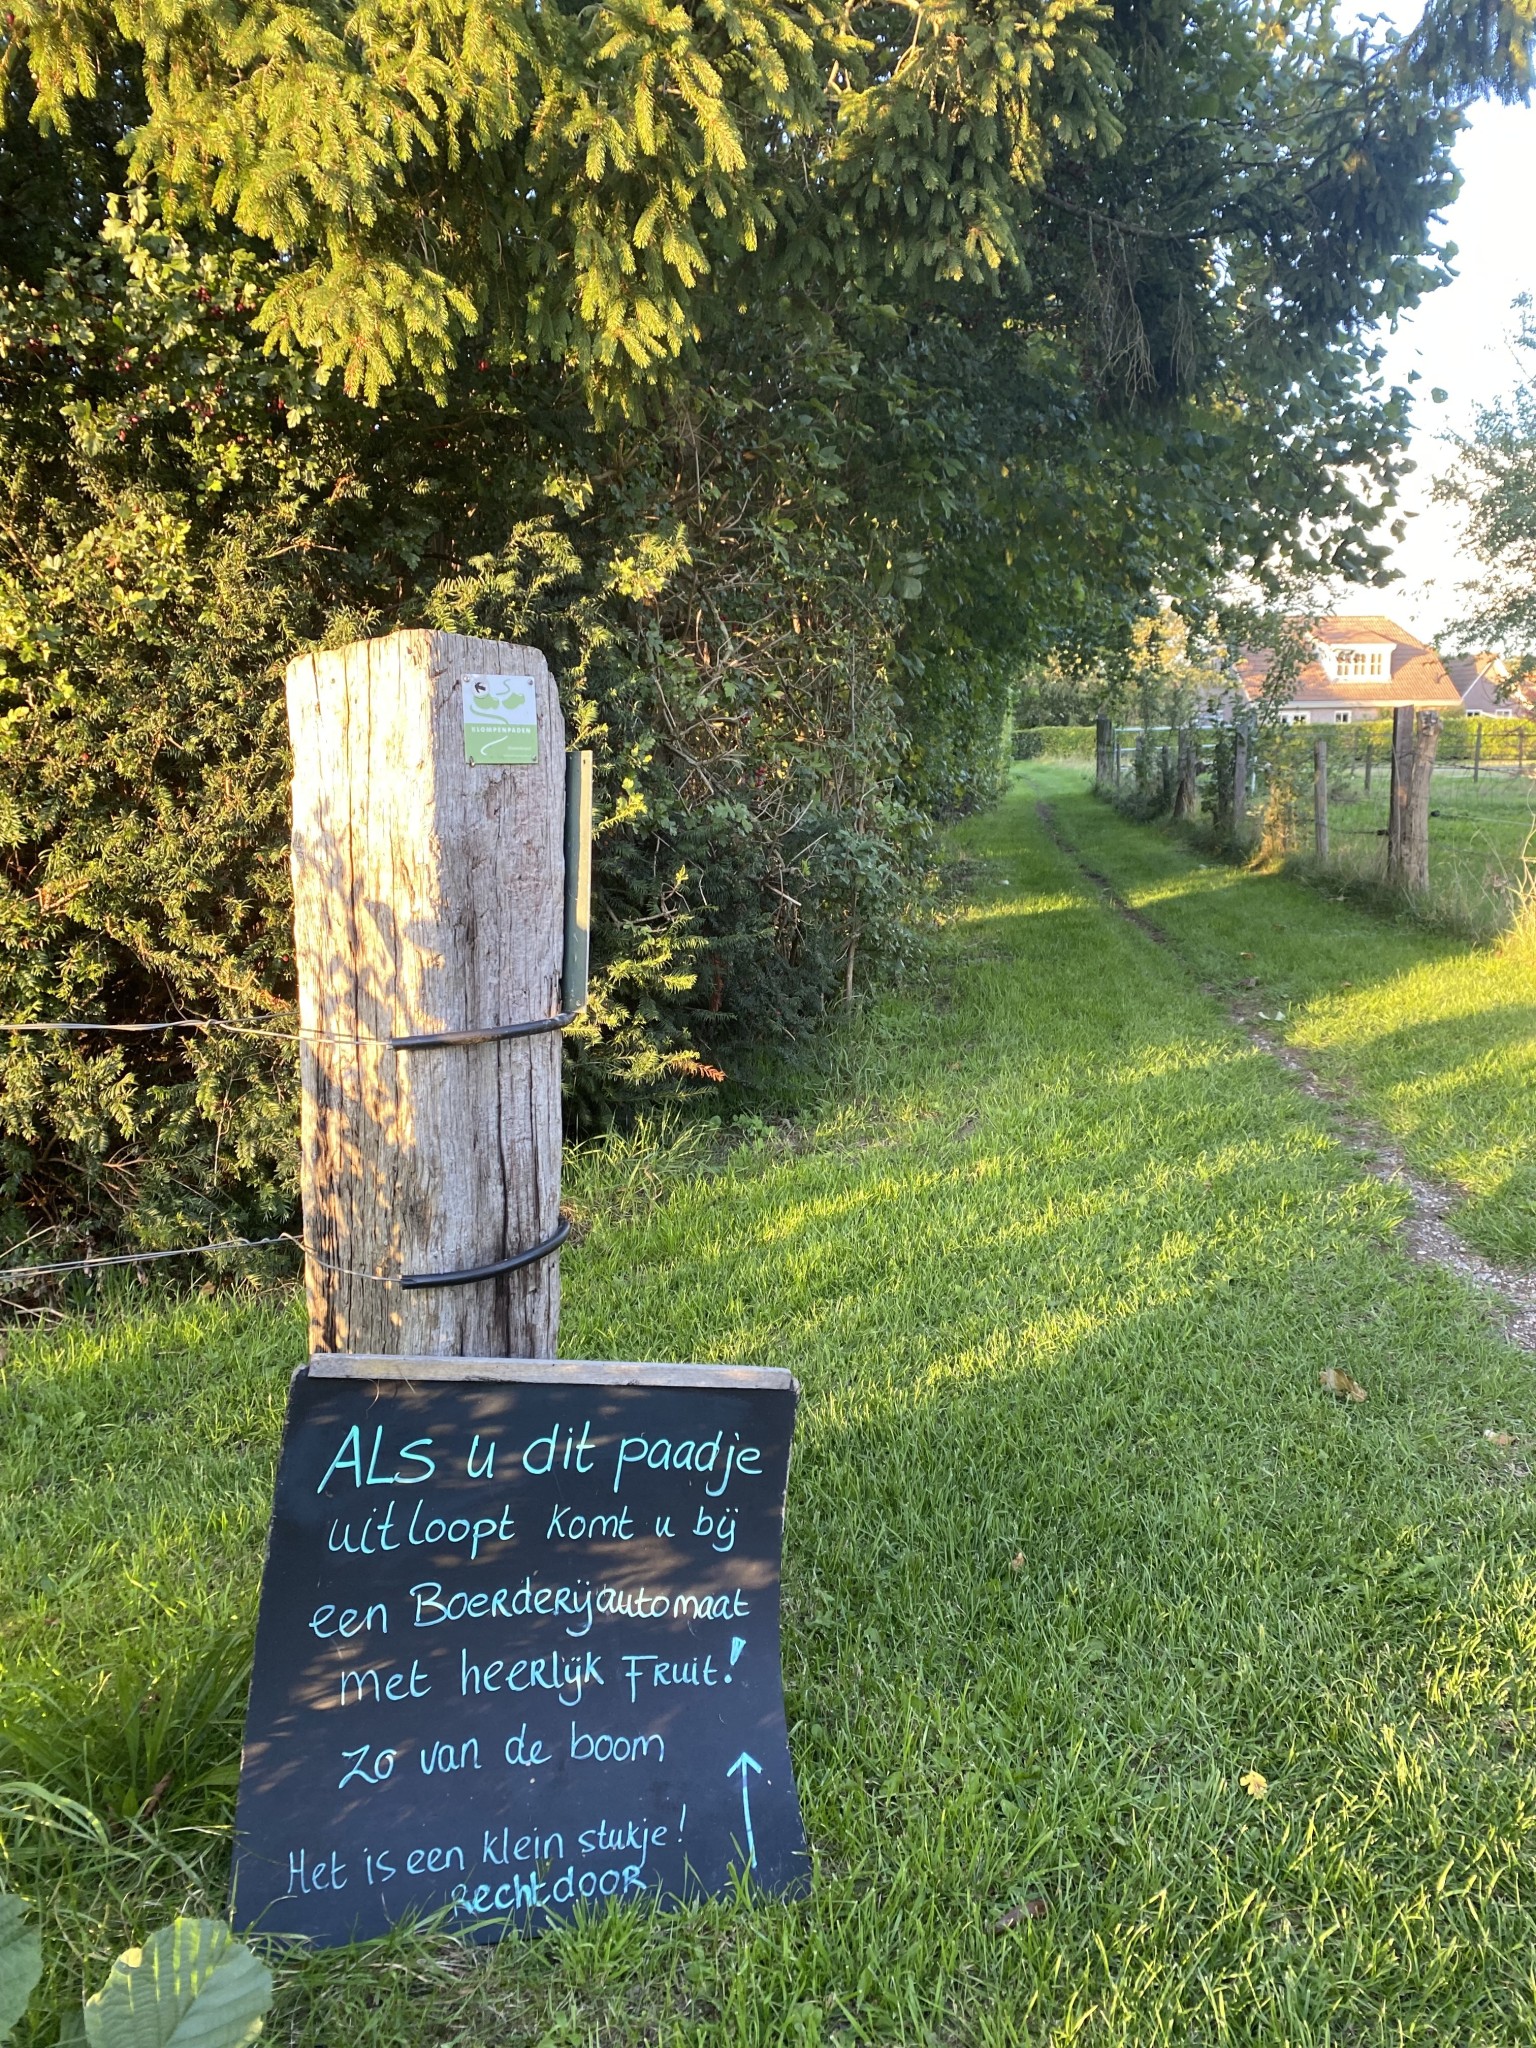 KLOMPENPADEN
ALS u dit paadje
uitloopt komt u bij
een Boerderijautomaat
met heerlijk Fruit!
Zo van de boom
Het is een klein stukje!
Rechtdoor